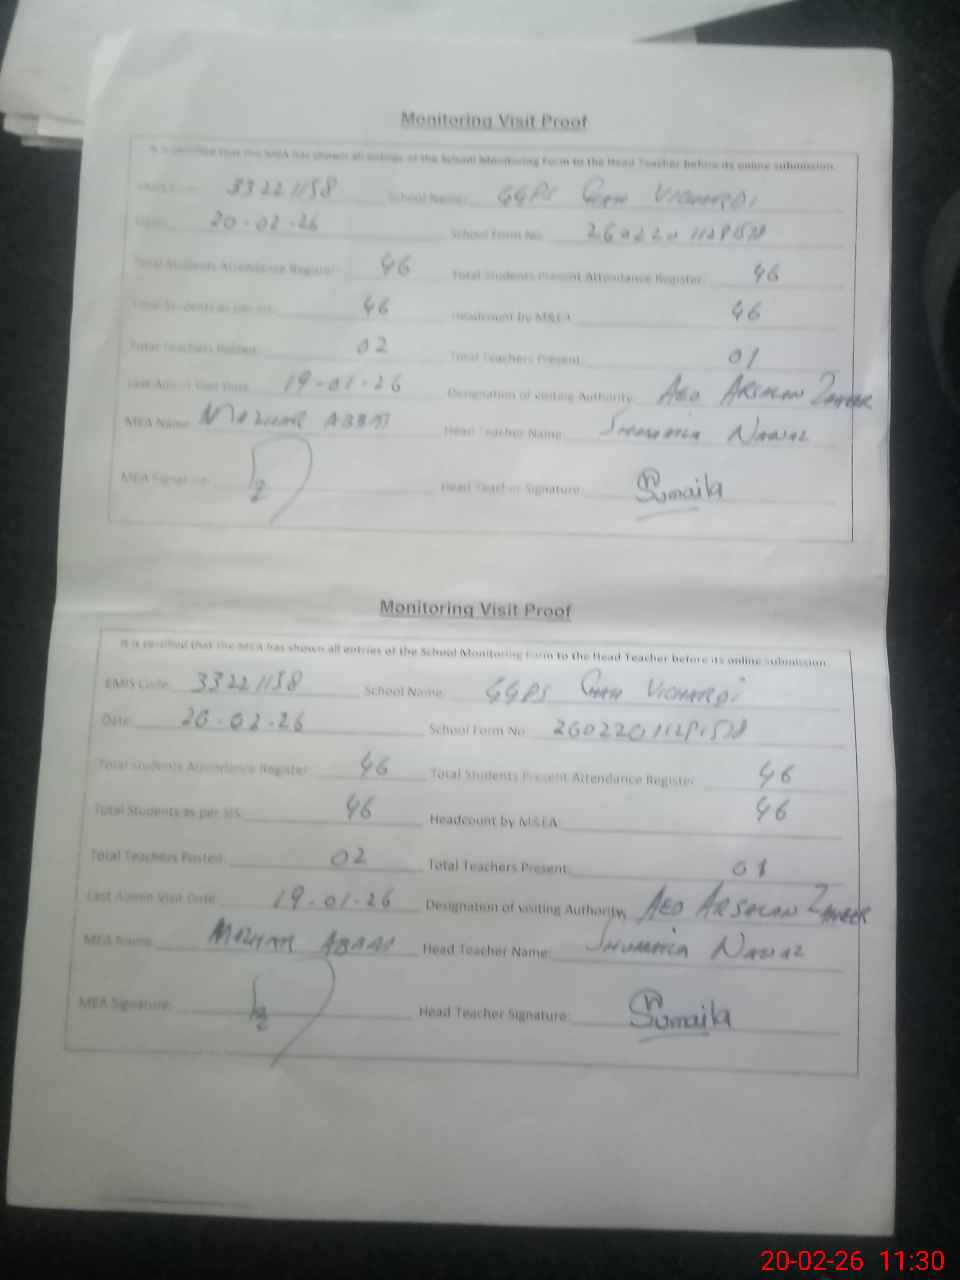 Monitoring Visit Proof
It is certified that the MEA has shown all entries of the School Monitoring Form to the Head Teacher before its online submission.
EMIS Code: 33221158 School Name: GGPS
Date: 20-02-26 School Form No:
Total Students Attendance Register: 46 Total Students Present Attendance Register: 46
Total Students as per SIS: 46 Headcount by M&EA: 46
Total Teachers Posted: 02 Total Teachers Present: 01
Last Admin Visit Date: 19-01-26 Designation of visiting Authority: AEO ARSALAN
MEA Name: Head Teacher Name: Nawaz
MEA Signature: Head Teacher Signature: Sumaila
Monitoring Visit Proof
It is certified that the MEA has shown all entries of the School Monitoring Form to the Head Teacher before its online submission.
EMIS Code: 33221158 School Name: GGPS
Date: 20-02-26 School Form No:
Total Students Attendance Register: 46 Total Students Present Attendance Register: 46
Total Students as per SIS: 46 Headcount by M&EA: 46
Total Teachers Posted: 02 Total Teachers Present: 01
Last Admin Visit Date: 19-01-26 Designation of visiting Authority: AEO ARSALAN
MEA Name: Head Teacher Name: Nawaz
MEA Signature: Head Teacher Signature: Sumaila
20-02-26 11:30